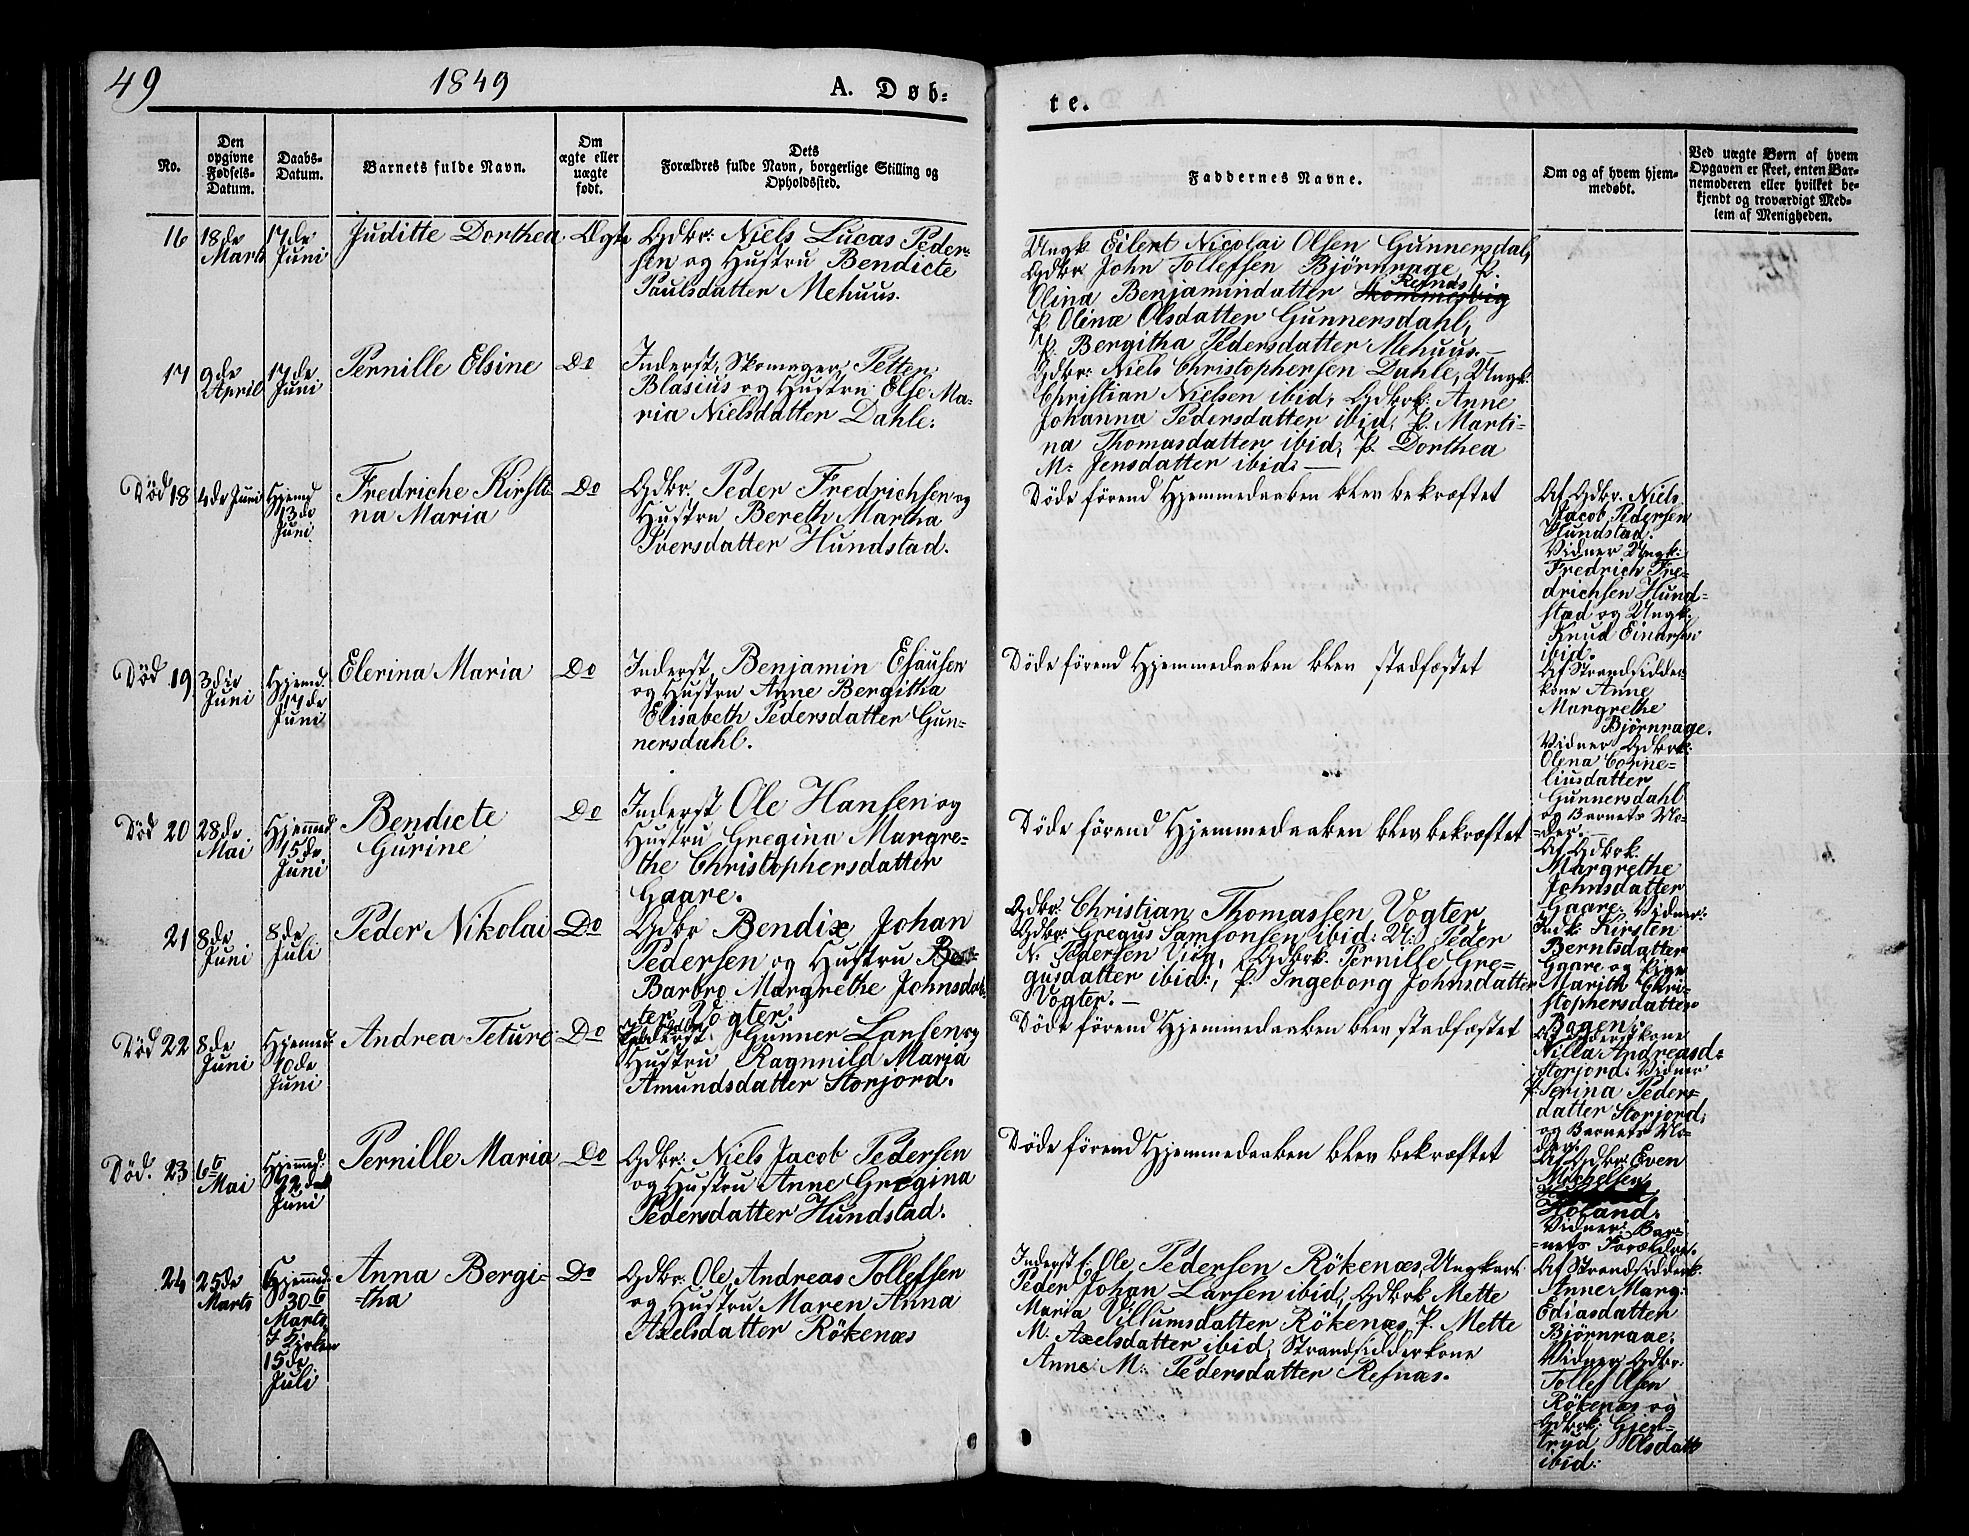 49
1849
A. Døb-
te.
No.
Den
opgivne
Fødsels-
Datum.
Daabs-
Datum.
Barnets fulde Navn.
Om
ægte eller
uægte
født.
Dets
Forældres fulde Navn, borgerlige Stilling og
Opholdssted.
Faddernes Navne.
Om og af hvem hjem-
medøbt.
Ved uægte Børn af hvem
Opgaven er skeet, enten Bar-
nemoderen eller hvilket be-
kjendt og troværdigt Med-
lem af Menigheden.
16
18de
Marts
17de
Juni
Juditte Dorthea
Ægte
Gdbr: Niels Lucas Peder-
sen og Hustru Bendicte
Paulsdatter Mehuus.
Ungk Eilert Nicolai Olsen Gunnersdal,
Gdbr John Tollefsen Björnrage, P.
Olina Benjamindatter Refnæs
P. Olinæ Olsdatter Gunnersdahl,
P. Bergitha Pedersdatter Mehuus.—
17
9de
April
17de
Juni
Pernille Elsine
Do
Inderst, Skomager Petter
Blasius og Hustru Else Ma-
ria Nielsdatter Dahle.
Gdbr: Niels Christophersen Dahle, Ungk:
Christian Nielsen ibid, Gdbrk: Anne
Johanna Pedersdatter ibid, P. Marti-
na Thomasdatter ibid, P. Dorthea
M. Jensdatter ibid:—
Död 18
4de Juni
Hjemd
13de
Juni
Fredriche Kirsti-
na Maria
Do
Gdbr. Peder Fredrichsen og
Hustru Bereth Martha
Iversdatter Hundstad.
Döde förend Hjemmedaaben blev bekræftet
Af Gdbr. Niels
Jacob Pedersen
Hundstad.
Vidner Ungk:
Fredrich Fre-
drichsen Hund-
stad og Ungk.
Knud Einarsen
ibid.
Död 19
3die
Juni
Hjemd.
17de
Juni
Elerina Maria
Do
Inderst, Benjamin Esausen
og Hustru Anne Bergitha
Elisabeth Pedersdatter Gun-
nersdahl.
Döde förend Hjemmedaaben blev stadfæstet
Af Strandsidder-
kone Anne
Margrethe
Björnrage.
Vidner Gdbrk:
Olena Corne-
liusdatter
Gunnersdahl
og Barnets Mo-
der.—
Död 20
28de
Mai
Hjemmed.
15de
Juni
Bendicte
Gurine
Do
Inderst Ole Hansen og
Hustru Gregina Margre-
the Christophersdatter
Gaare.
Döde förend Hjemmedaaben blev bekræftet
Af Gdbrk.
Margrethe
Johnsdatter
Gaare. Vidner:
Indk: Kirsten
Berntsdatter
Gaare og Pige
Marith Chri-
stophersdatter
Bagen.
21
8de
Juni
8de
Juli
Peder Nikolai
Do
Gdbr Bendix Johan
Pedersen og Hustru
Barbro Margrethe Johnsdat-
ter Vogter.
Gdbr: Christian Thomassen Vogter,
Gdbr: Gregus Samsonsen ibid: U: Peder
N. Pedersen Viig, Gdbrk: Pernille Gre-
gusdatter ibid:, P. Ingeborg Johnsdatter
Vogter.—
Död 22
8de
Juni
Hjemmed.
10de
Juni
Andrea Teture
Do
Gunner Larsen og
Hustru Ragnnild Maria
Amundsdatter Storjord.
Döde förend Hjemmedaaben blev stadfæstet
Af Inderstkone
Nilla Andreasd-
Storjord: Vidner
P. Serina Peders-
datter Storjord,
og Barnets Mo-
der.
Död. 23
6te
Mai
Hjemmed:
12de
Juni
Pernille Maria
Do
Gdbr: Niels Jacob Pedersen
og Hustru Anne Gregina
Pedersdatter Hundstad.
Döde förend Hjemmedaaben blev bekræftet
Af Gdbr: Even
Michelsen
Höland.
Vidner: Bar-
nets Forældre.
24
25de
Marts
Hjemmed:
30te
Marts
I Kirken
15de
Juli
Anna Bergi-
tha
Do
Gdbr: Ole Andreas Tollefsen
og Hustru Maren Anna
Axelsdatter Rökenæs
Inderst f. Ole Pedersen Rökenæs, Ungkarl
Peder Johan Larsen ibid, Gdbrk Mette
Maria Villumsdatter Rökenæs, P. Mette
M. Axelsdatter ibid, Strandsidderkone
Anne M. Pedersdatter Refnæs.
Af Strandsidderk.
Anne Marg:
Ediasdatter
Björnrage.
Vidner Gdbr:
Tollef Olsen
Rökenæs og
Gdbrk: Gjer-
tryd Olsdatt
ibid: